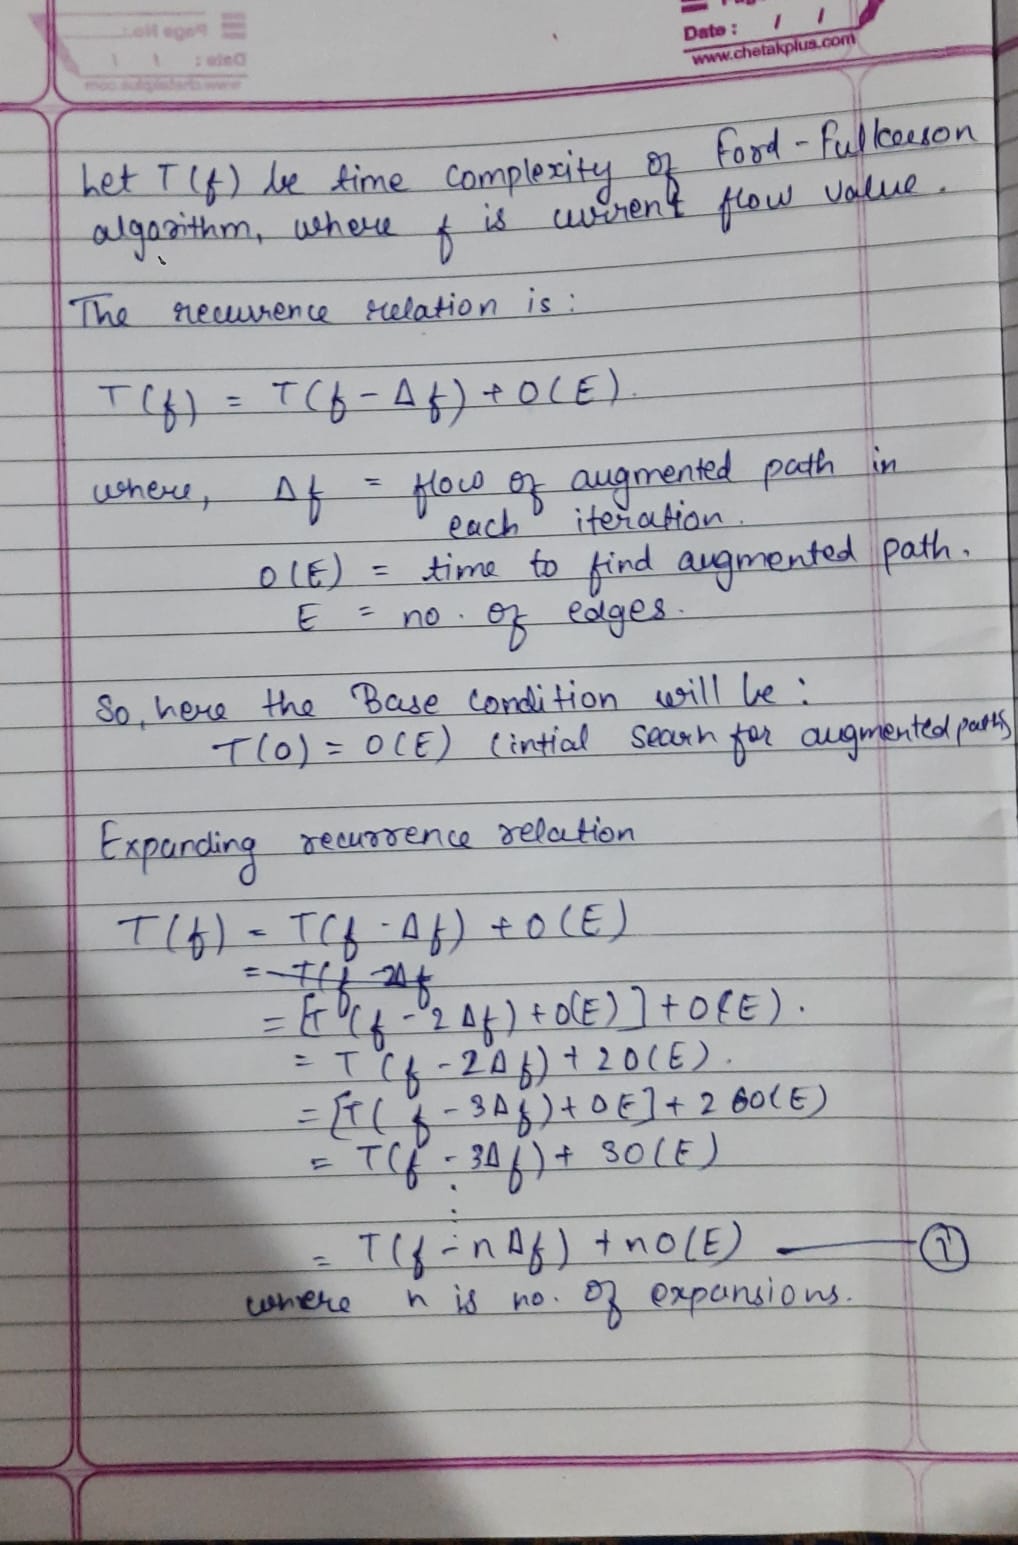 Date : / /
www.chetakplus.com
Let T(f) be time complexity of Ford - Fulkerson
algorithm, where f is current flow value.
The recurrence relation is :
T(f) = T(f - Δf) + O(E).
where, Δf = flow of augmented path in
each iteration.
O(E) = time to find augmented path.
E = no. of edges.
So, here the Base Condition will be :
T(0) = O(E) (intial search for augmented paths
Expanding recurrence relation
T(f) = T(f - Δf) + O(E)
= T(f - 2Δf
= [T(f - 2Δf) + O(E)] + O(E).
= T(f - 2Δf) + 2O(E).
= [T(f - 3Δf) + OE] + 2 O(E)
= T(f - 3Δf) + 3O(E)
⋮
= T(f - nΔf) + nO(E) — (1)
where n is no. of expansions.